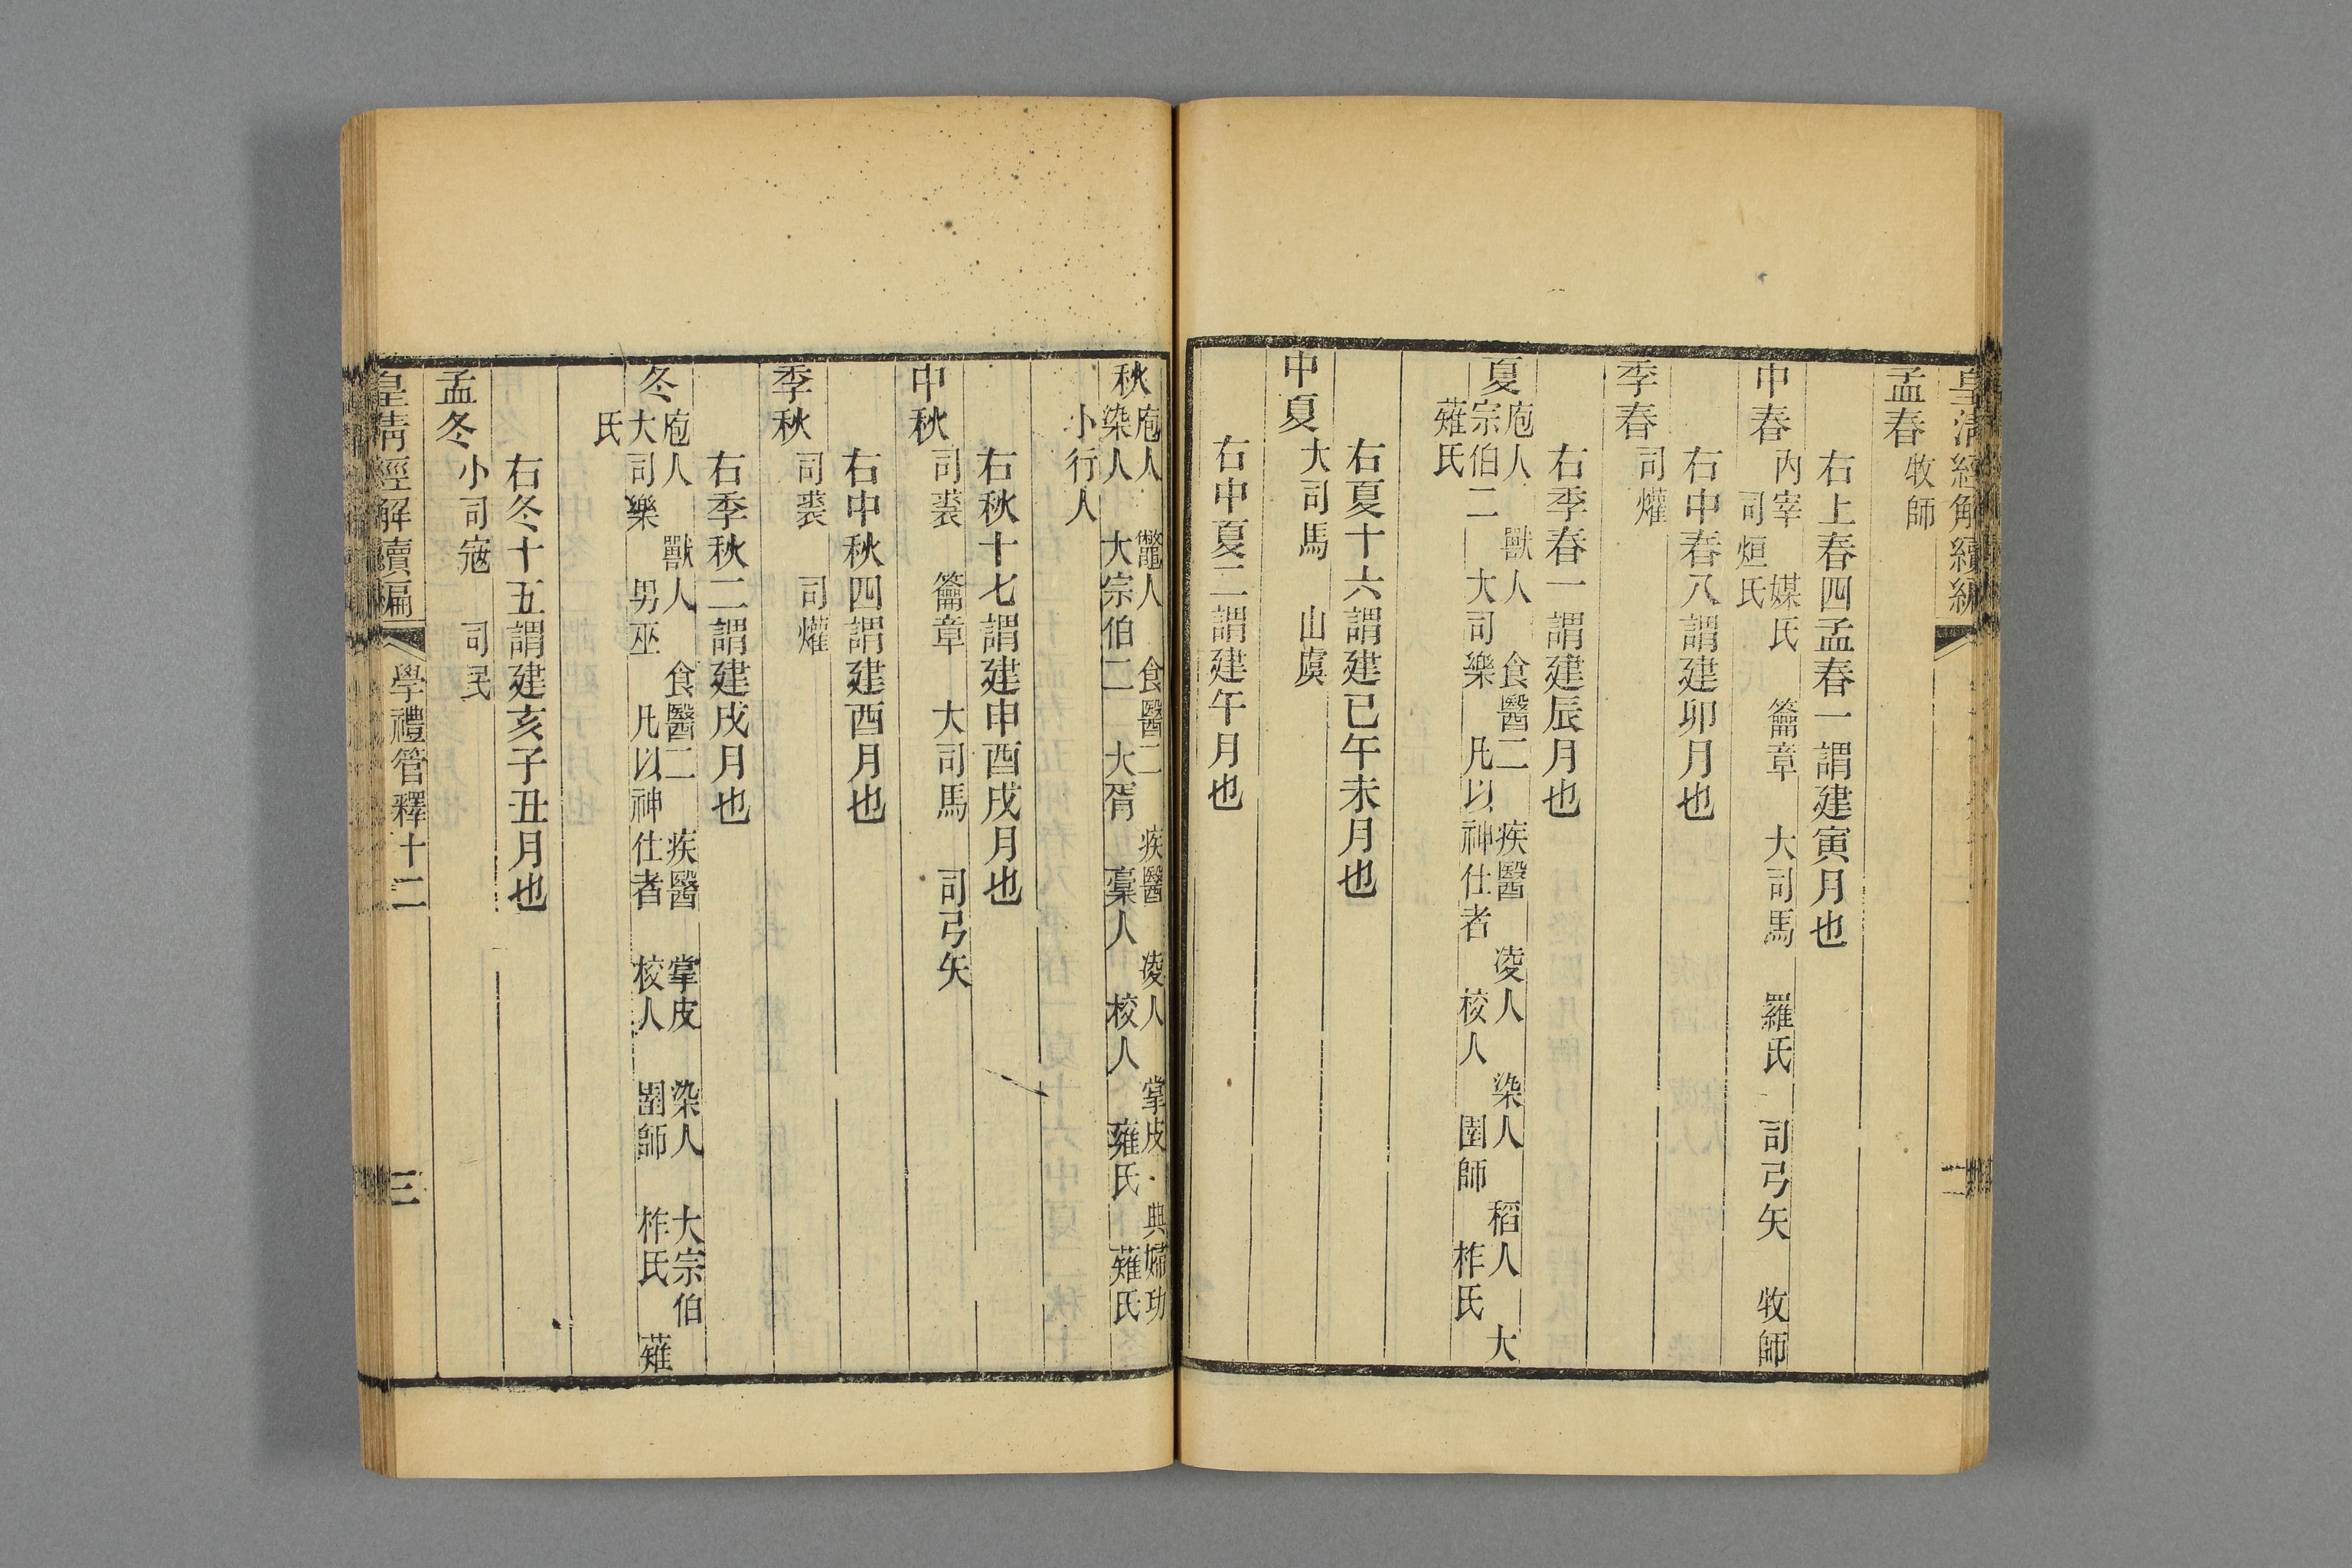 皇清經解續編
孟春牧師
右上春四孟春一謂建寅月也
中春內宰 媒氏 籥章 大司馬 羅氏 司弓矢 牧師
司烜氏
右中春八謂建卯月也
季春司爟
右季春一謂建辰月也
夏庖人 獸人 食醫二 疾醫 凌人 染人 稻人 大
宗伯二 大司樂 凡以神仕者 校人 圉師 柞氏
薙氏
右夏十六謂建巳午未月也
中夏大司馬 山虞
右中夏二謂建午月也
秋庖人 鼈人 食醫二 疾醫 凌人 掌皮 典婦功
染人 大宗伯二 大胥 稾人 校人 雍氏 薙氏
小行人
右秋十七謂建申酉戌月也
中秋司裘 籥章 大司馬 司弓矢
右中秋四謂建酉月也
季秋司裘 司爟
右季秋二謂建戌月也
冬庖人 獸人 食醫二 疾醫 掌皮 染人 大宗伯
大司樂 男巫 凡以神仕者 校人 圉師 柞氏 薙
氏
右冬十五謂建亥子丑月也
孟冬小司寇 司民
皇清經解續編 學禮管釋十二 三